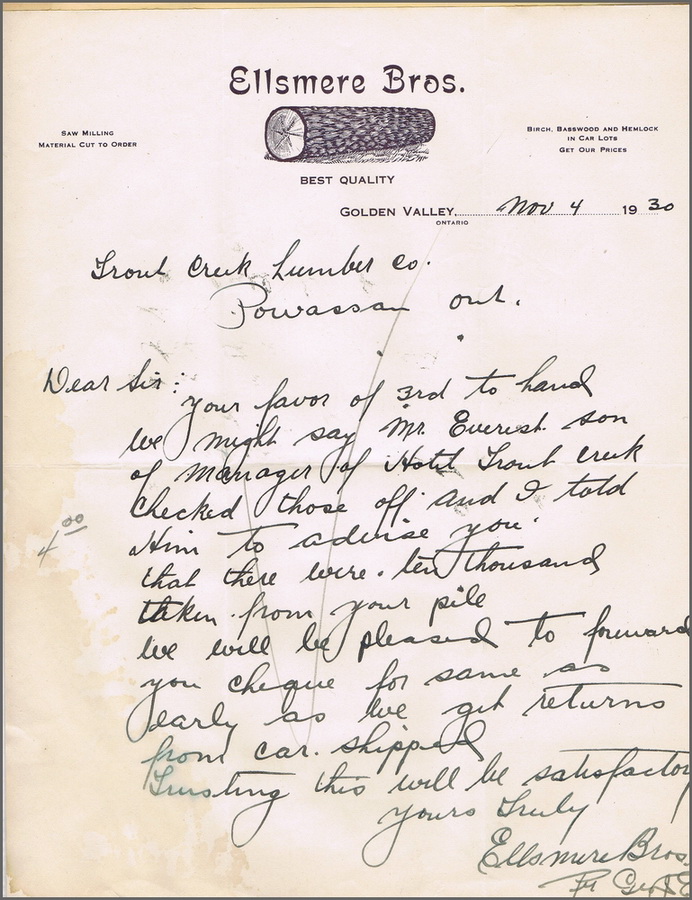 Ellsmere Bros.
Saw Milling
Material Cut to Order
Birch, Basswood and Hemlock
in Car Lots
Get Our Prices
BEST QUALITY
Golden Valley, Nov 4 1930
ONTARIO
Trout Creek Lumber Co.
Powassan Ont.
Dear Sir:
your favor of 3rd to hand
We might say Mr. Everest son
of Manager of Hotel Trout Creek
Checked those off and I told
Him to advise you
that there were ten thousand
taken from your pile
4.00
We will be pleased to forward
you cheque for same as
early as we get returns
from car shipped
Trusting this will be satisfactory
yours Truly
Ellsmere Bros.
Pr